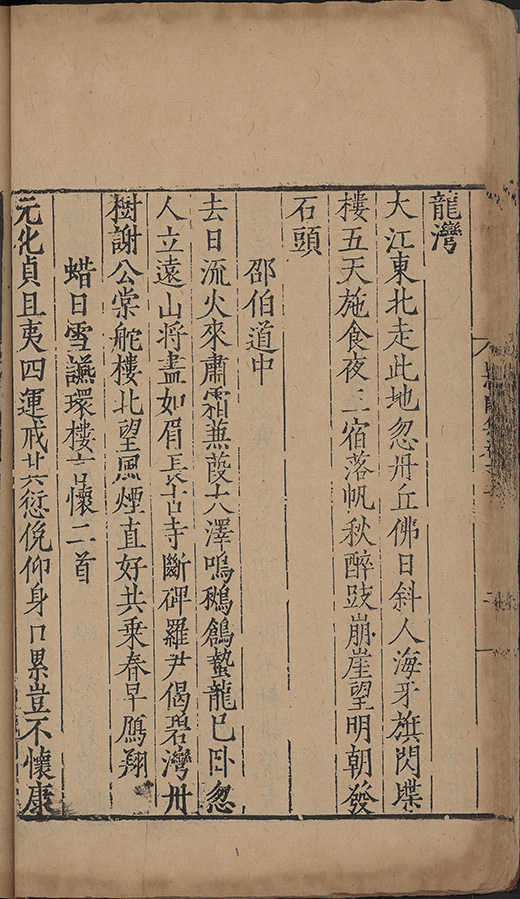 龍灣
大江東北走此地忽丹丘佛日斜人海牙旗閃堞
樓五天施食夜三宿落帆秋醉跂崩崖望明朝發
石頭
邵伯道中
去日流火來肅霜蒹葭大澤鳴鵝鶬蟄龍已卧忽
人立遠山将盡如眉長古寺斷碑羅尹偈碧灣丹
樹謝公棠舵樓北望風煙直好共乘春早鴈翔
蜡日雪讌環樓言懷二首
元化貞且夷四運戒愆俛仰身口累豈不懷康